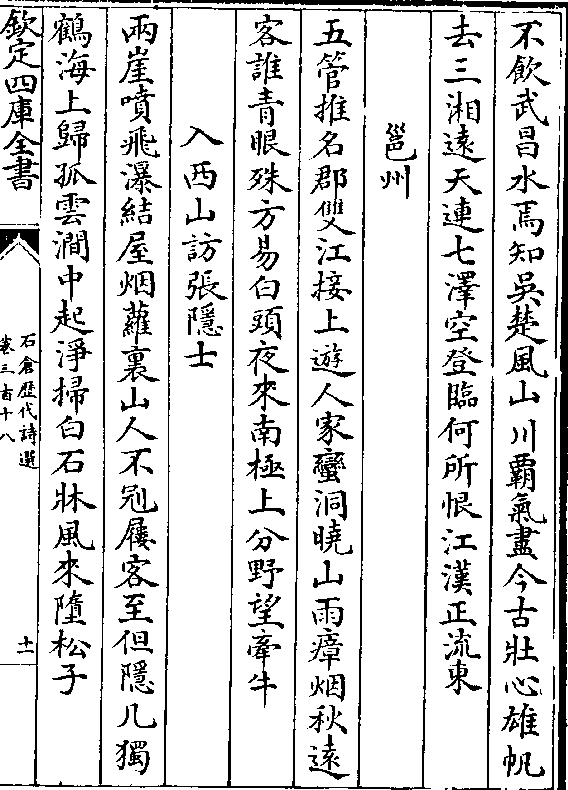 不飲武昌水焉知吳楚風山川霸氣盡今古壯心雄帆
去三湘遠天連七澤空登臨何所恨江漢正流東
邕州
五管推名郡雙江接上遊人家蠻洞曉山雨瘴烟秋遠
客誰青眼殊方易白頭夜來南極上分野望牽牛
入西山訪張隱士
兩崖噴飛瀑結屋烟蘿裏山人不冠屨客至但隱几獨
鶴海上歸孤雲澗中起淨掃白石牀風來墮松子
欽定四庫全書
石倉歷代詩選
卷三百十八
十一